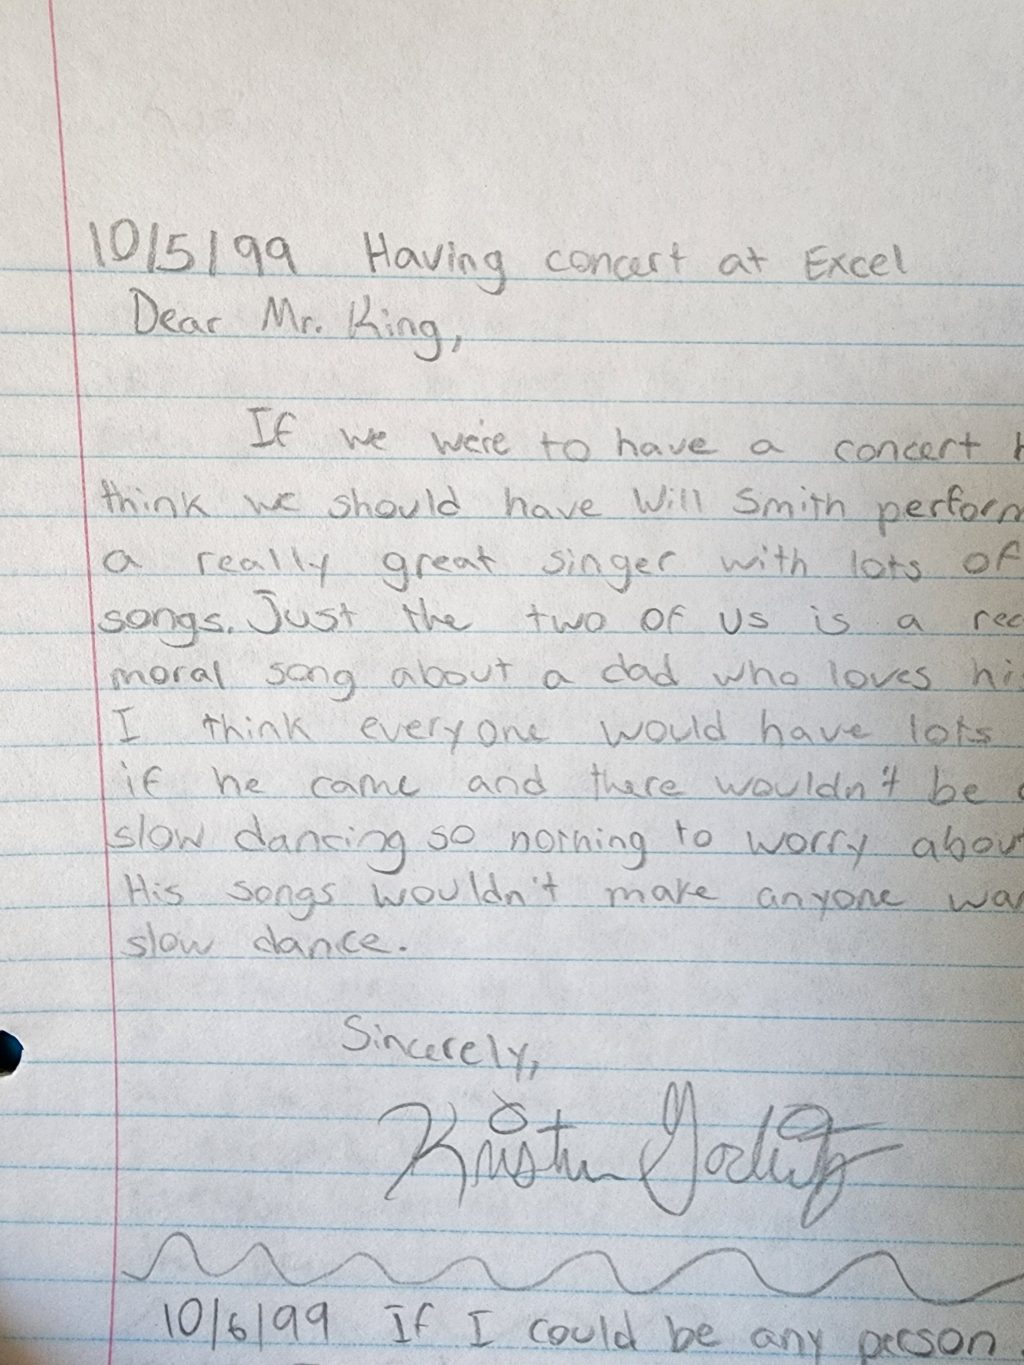 10/5/99 Having concert at Excel
Dear Mr. King,
If we were to have a concert h
think we should have Will Smith perform
a really great singer with lots of
songs. Just the two of us is a rea
moral song about a dad who loves his
I think everyone would have lots
if he came and there wouldn't be a
slow dancing so nothing to worry about
His songs wouldn't make anyone wan
slow dance.
Sincerely,
Kristin
10/6/99 If I could be any person